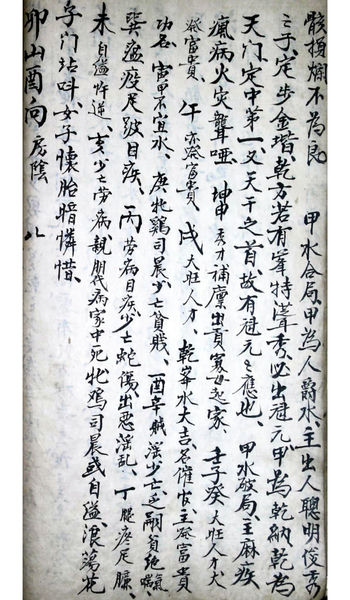 骸損爛不為良　甲水合局、甲為人爵水、主出人聰明俊秀
三子定步金堦、乾方若有峯特聳秀、必出魁元、甲為乾納、乾為
天門、定中第一、又天干之首、故有魁元之應也、　甲水破局、主麻疾
瘋病火災聾啞、　坤申　秀才補廩出貢寡母起家、　壬子癸　大旺人才
發富貴、　午　亦發富貴、　戌　大旺人才、　乾峯水大吉名催官、主發富貴
功名　寅甲不宜水、　庚牝鷄司晨、少亡貧賤、　酉辛賊淫少亡乏嗣貧絶
巽瘟疫尼跛目疾、　丙　勞病目疾少亡蛇傷出惡淫亂、　丁腿疼尼臁、
未　自縊忤逆、　亥少亡勞病親朋代病家中死牝鷄司晨或自縊、浪蕩花
子門站叫、女子懷胎暗憐惜、
卯山酉向　屬陰　八